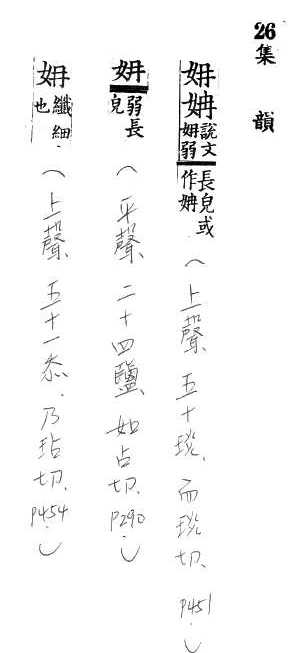 26集韻
㚩姌說文㚩弱長皃或作姌(上聲、五十琰、而琰切、p451.)
㚩弱長皃(平聲、二十四鹽、如占切、p290.)
㚩纖細也.(上聲、五十一忝.乃玷切、p454.)